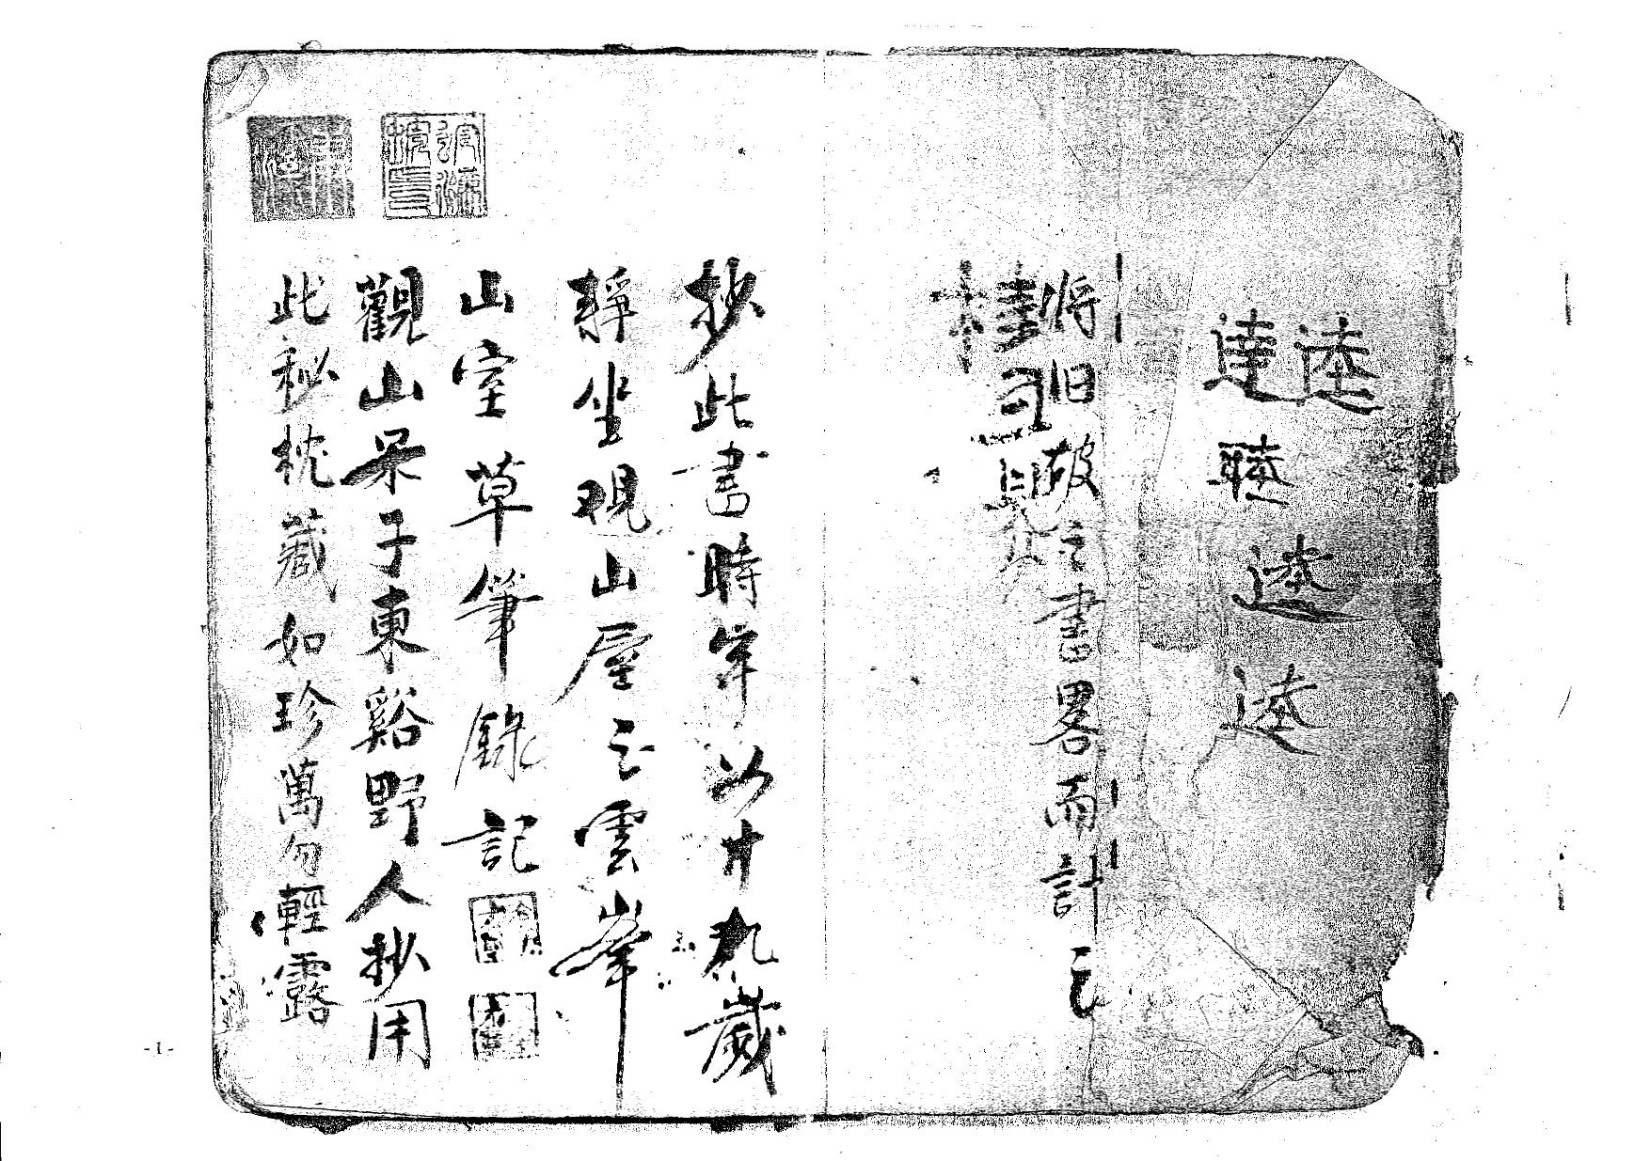 逵
達
睦
逵
逵
將旧破之書畧而計之
抄此書時年以廿九歲
靜坐观山屋之雲峯
山室草筆錄記
觀山呆子東谿野人抄用
此秘枕藏如珍萬勿輕露
-1-